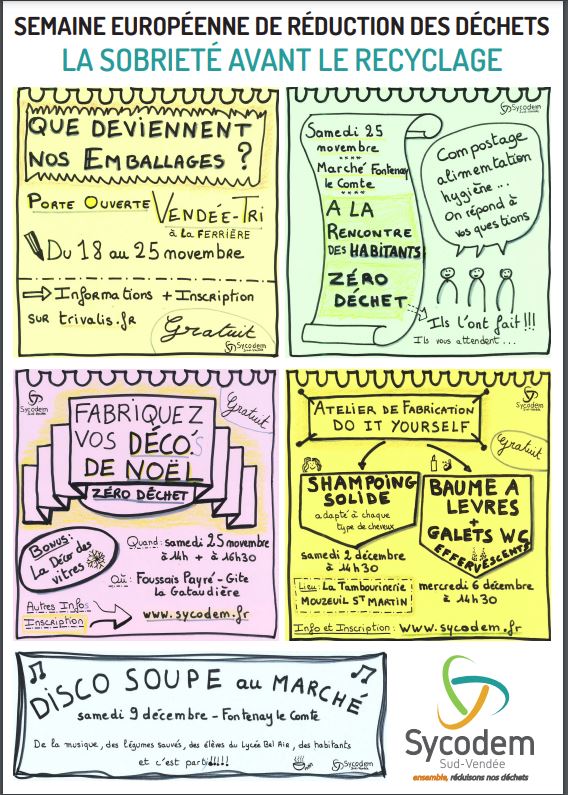 SEMAINE EUROPÉENNE DE RÉDUCTION DES DÉCHETS
LA SOBRIETÉ AVANT LE RECYCLAGE
QUE DEVIENNENT
NOS EMBALLAGES ?
PORTE OUVERTE VENDÉE-TRI
à la FERRIÈRE
Du 18 au 25 novembre
Informations + Inscription
SUR trivalis.fr
Gratuit
Sycodem
Sycodem
Samedi 25
novembre
Marché Fontenay
le Comte
A LA
RENCONTRE
DES HABITANTS
ZÉRO
DÉCHET
Compostage
alimentation
hygiène...
On répond à
vos questions
Ils l'ont fait !!!
Ils vous attendent ...
Sycodem
Gratuit
FABRIQUEZ
VOS DÉCO'S
DE NOËL
ZÉRO DÉCHET
Bonus :
La Décor des
vitres
Quand : samedi 25 novembre
à 14h + à 16h30
Où : Foussais Payré - Gite
La Gataudière
Autres Infos
Inscription
www.sycodem.fr
Sycodem
ATELIER DE FABRICATION
DO IT YOURSELF
Gratuit
SHAMPOING
SOLIDE
adapté à chaque
type de cheveux
samedi 2 décembre
à 14h30
BAUME A
LEVRES
+
GALETS WC
EFFERVESCENTS
mercredi 6 décembre
à 14h30
Lieu : La Tambourinerie
MOUZEUIL ST MARTIN
Info et Inscription : www.sycodem.fr
DISCO SOUPE au MARCHÉ
samedi 9 décembre - Fontenay le Comte
De la musique, des légumes sauvés, des élèves du Lycée Bel Air, des habitants
et c'est parti!!!!!
Sycodem
Sycodem
Sud-Vendée
ensemble, réduisons nos déchets